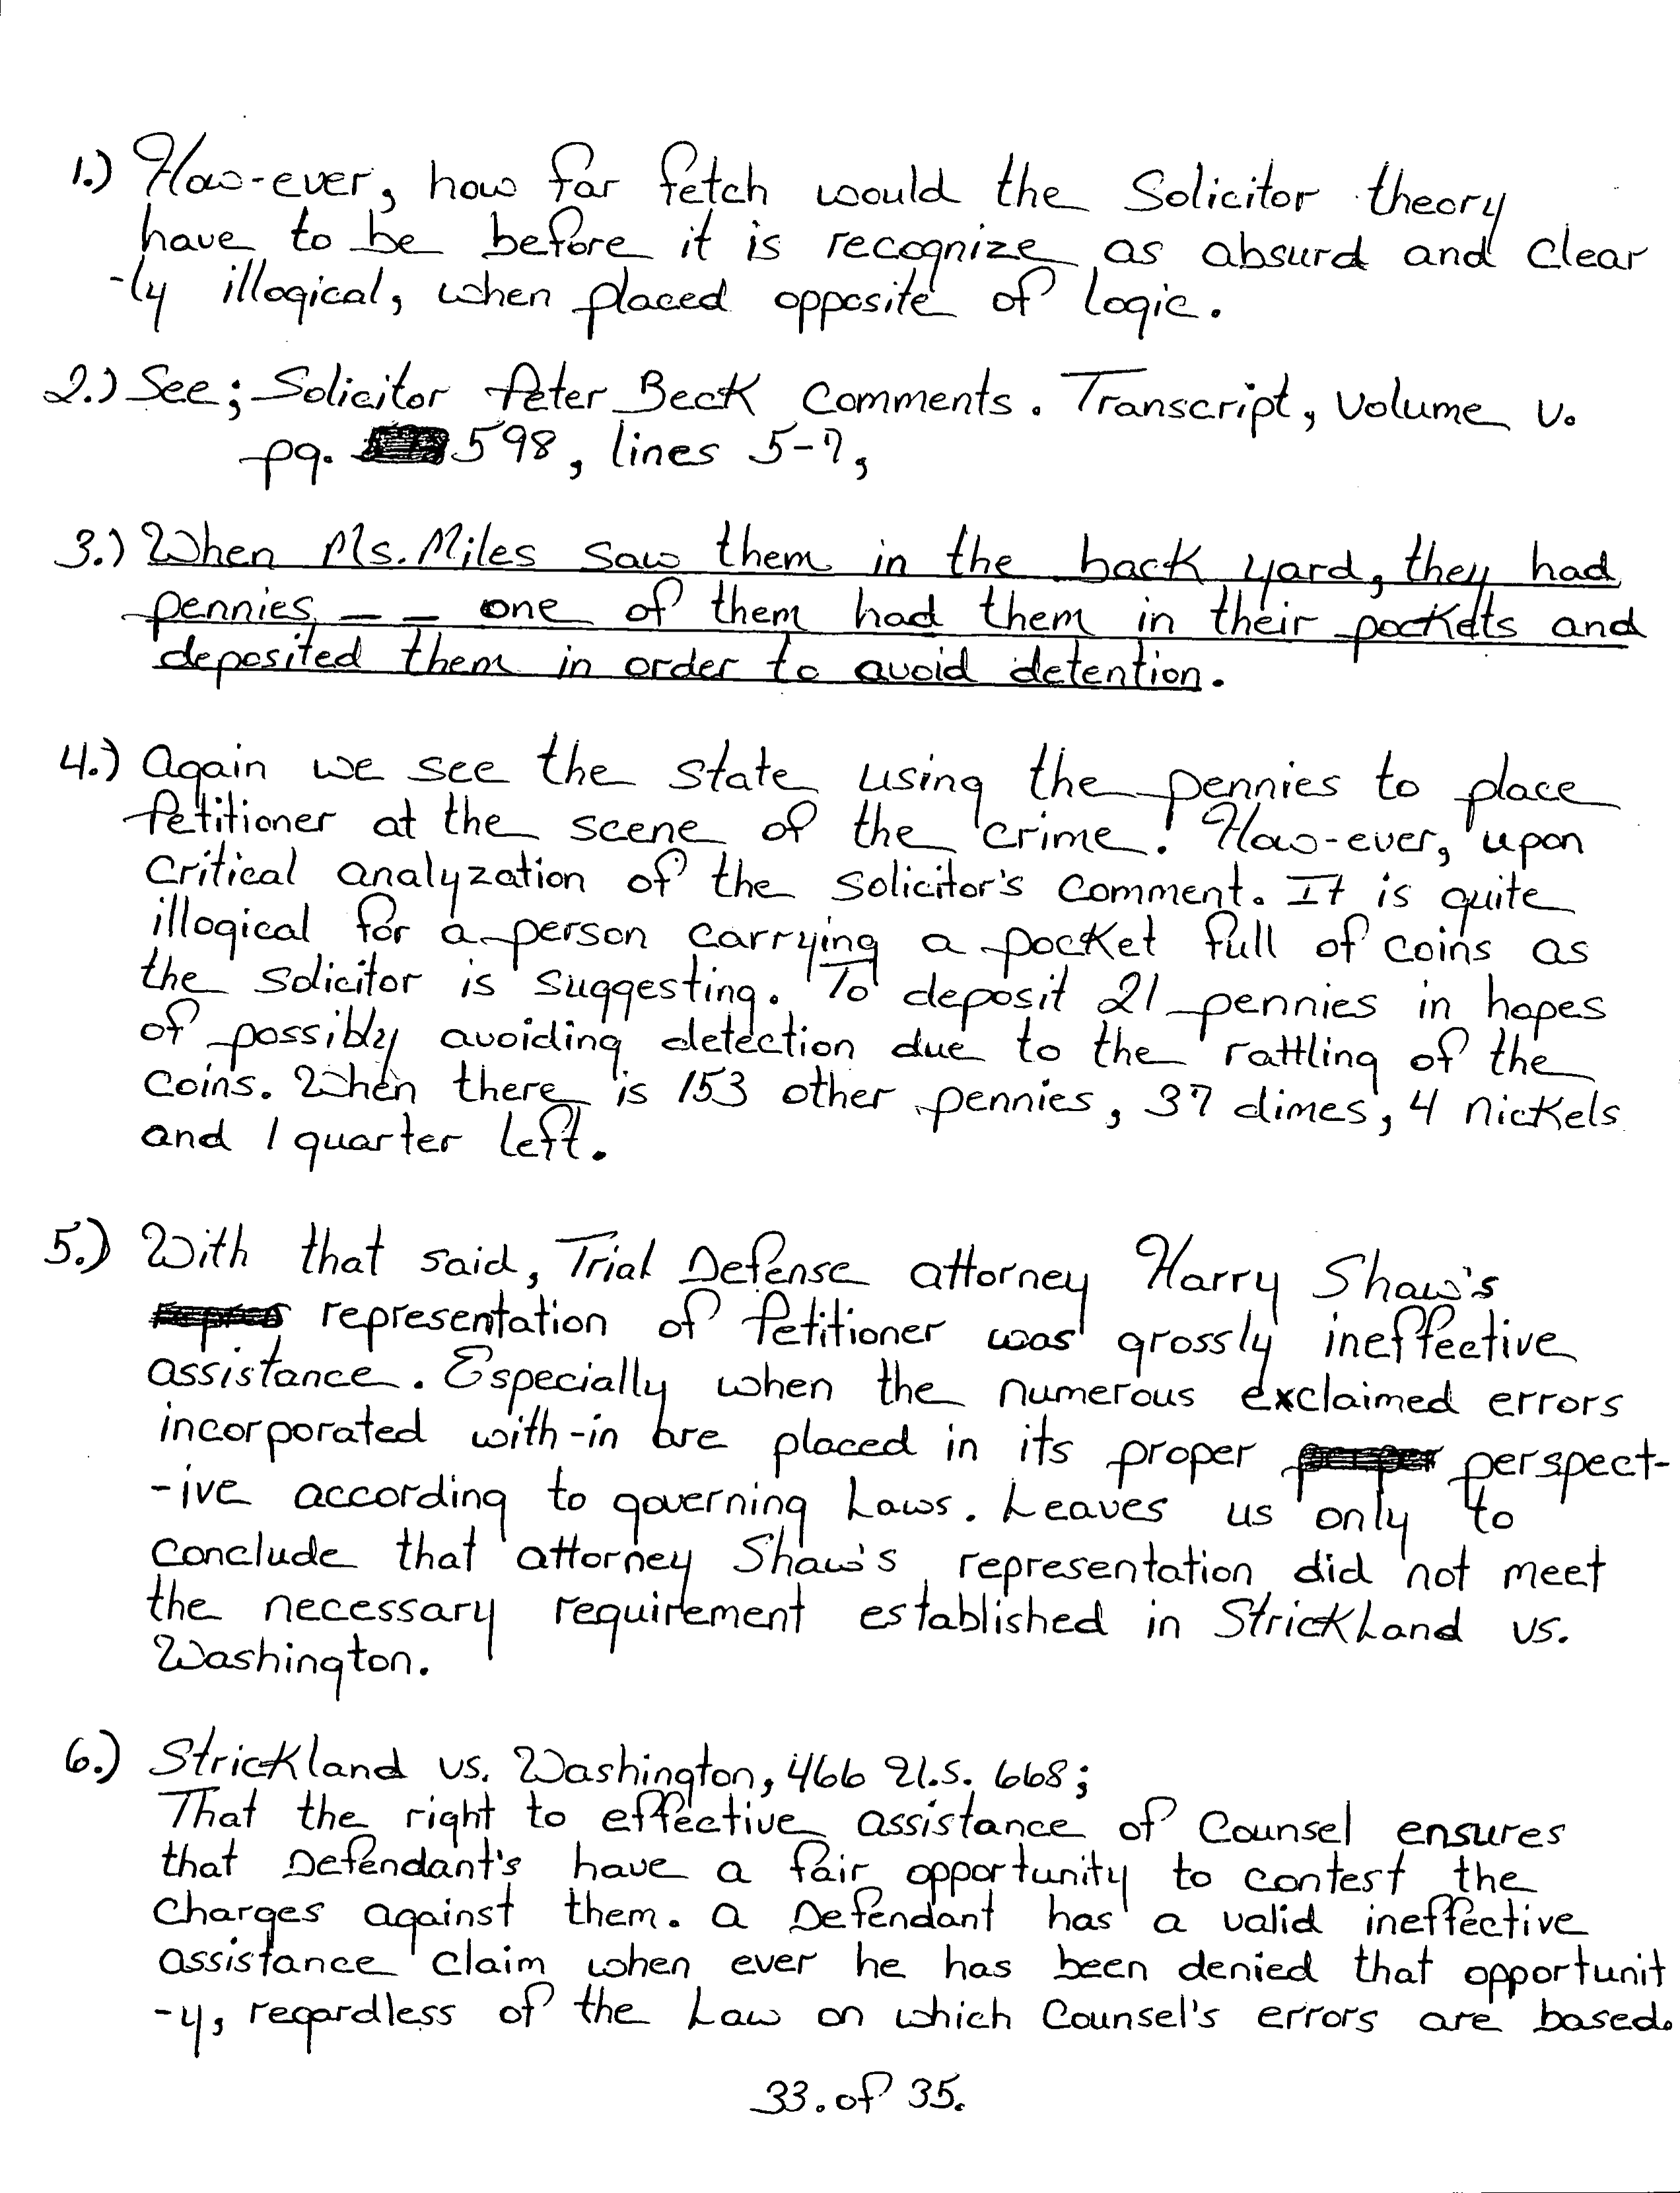 1.) How-ever, how far fetch would the Solicitor theory
have to be before it is recognize as absurd and clear
-ly illogical, when placed opposite of logic.
2.) See; Solicitor Peter Beck Comments. Transcript, Volume V.
pg. 598, lines 5-7,
3.) When Ms. Miles saw them in the back yard, they had
pennies, — — one of them had them in their pockets and
deposited them in order to avoid detention.
4.) Again we see the state using the pennies to place
Petitioner at the scene of the crime. How-ever, upon
critical analyzation of the solicitor's comment. It is quite
illogical for a person carrying a pocket full of coins as
the solicitor is suggesting. To deposit 21 pennies in hopes
of possibly avoiding detection due to the rattling of the
coins. When there is 153 other pennies, 37 dimes, 4 nickels
and 1 quarter left.
5.) With that said, Trial Defense attorney Harry Shaw's
representation of Petitioner was grossly ineffective
assistance. Especially when the numerous exclaimed errors
incorporated with-in are placed in its proper perspect-
-ive according to governing Laws. Leaves us only to
conclude that attorney Shaw's representation did not meet
the necessary requirement established in Strickland vs.
Washington.
6.) Strickland vs. Washington, 466 U.S. 668;
That the right to effective assistance of Counsel ensures
that Defendant's have a fair opportunity to contest the
Charges against them. A Defendant has a valid ineffective
assistance claim when ever he has been denied that opportunit
-y, regardless of the Law on which Counsel's errors are based.
33. of 35.